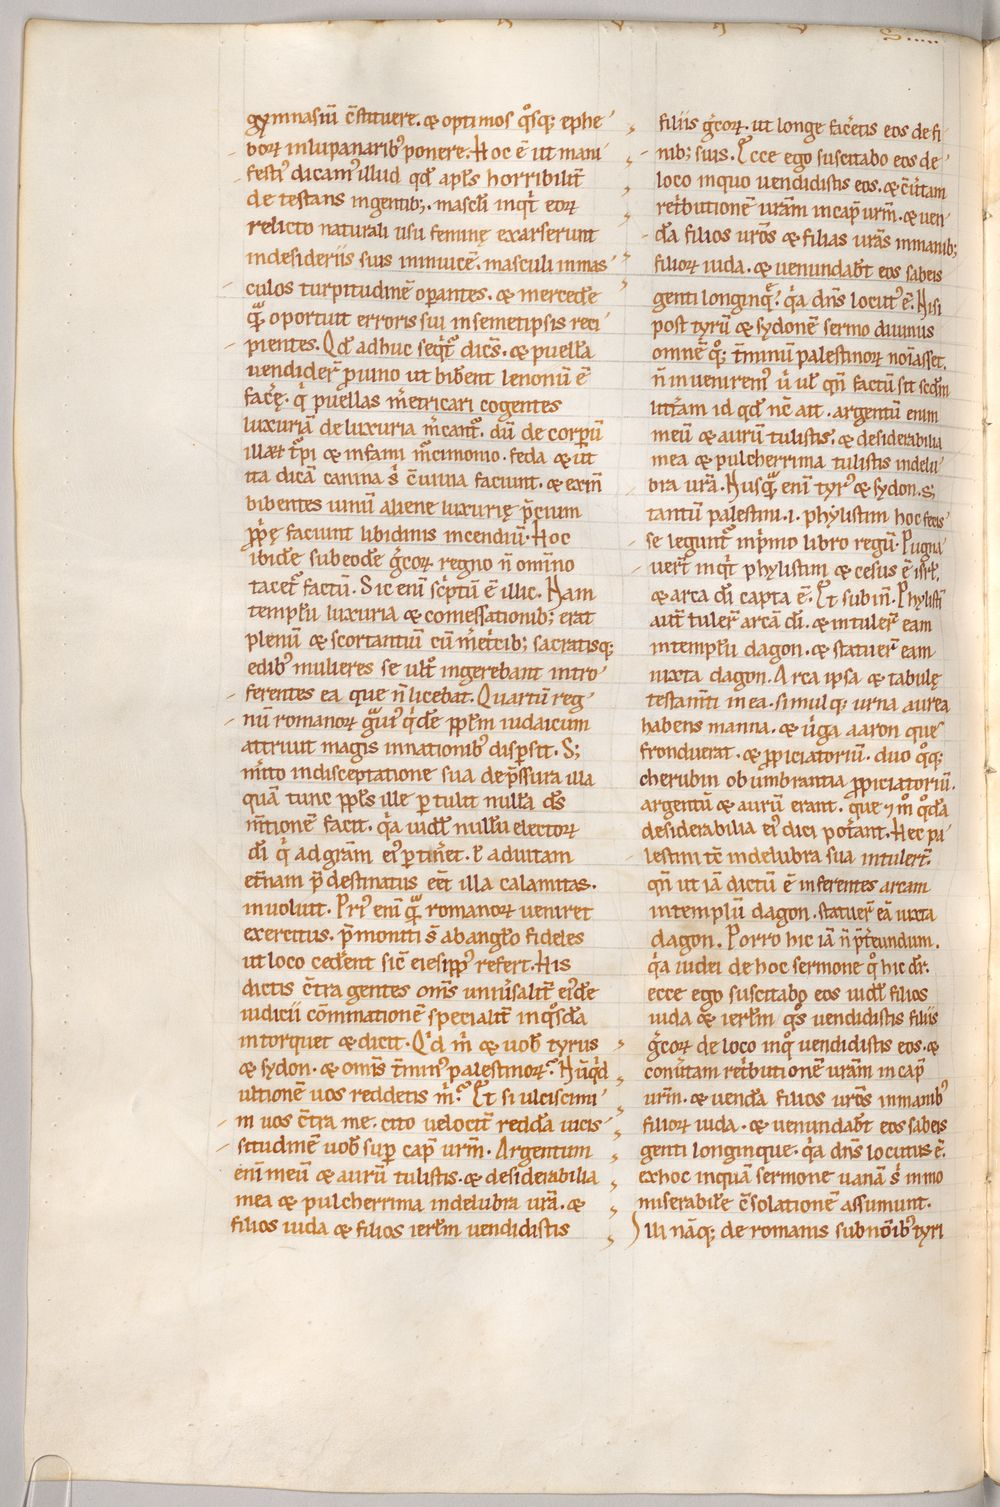 gymnasiū c̄stituere. & optimos q̊sq; ephe
boꝝ in lupanarib᷒ ponere. Hoc ē ut mani
festi᷒ dicam᷒ illud qd̄ apl̄s horribilit̄
detestans in gentib;. masculi inqͥt eoꝝ
relicto naturali usu feminę exarserunt
in desideriis suis in inuicē. masculi in mas
culos turpitudinē oꝑantes. & mercedē
quā oportuit erroris sui in semetipsis reci
pientes. Qd̄ adhuc seqͥt᷒ dicēs. & puellā
uendider̄ ꝓ uino ut bib̄ent lenonū ē
facr̄ę. qͥ puellas m̄etricari cogentes
luxuriā de luxuria m̄cant᷒. dū de corꝑū
illaꝝ t᷒pi & infami m̄cimonio. feda & ut
ita dicā canina s̄ c̄uiuia faciunt. & exin̄
bibentes uinū aliene luxurię p̄cium
ꝓp̄ę faciunt libidinis incendiū. Hoc
ibidē sub eodē ḡcoꝝ regno n̄ omīno
tacet᷒ factū. Sic enī sc̄ptū ē illic. Nam
templū luxuria & comessationib; erat
plenū & scortantiū cū m̄etͥcib; sacratisq;
edib᷒ mulieres se ult̄ ingerebant intro
ferentes ea que n̄ licebat. Quartū reg
nū romanoꝝ gͣui᷒ qͥdē ppl̄m iudaicum
attriuit magis in nationib᷒ disꝑsit. S;
m̄ito in disceptatione sua de p̄ssura illa
quā tunc ppl̄s ille ꝑtulit nullā ds̄
m̄tionē facit. qͥa uidl̄ nullū electoꝝ
dī qͥ ad grām ei᷒ ꝑtin̄et. ł ad uitam
et̄nam p̄destinatus eēt illa calamitas
inuoluit. Pri᷒ enī quā romanoꝝ ueniret
exercitus. p̄moniti s̄ ab anglo fideles
ut loco ced̄ent sic̄ eiesipp᷒ refert. His
dictis c̄tra gentes om̄s uniūsalit̄ ei᷒dē
iudicii cōminationē specialit̄ in q̊sdā
intorquet & dicit. Qͥd m̄ & uob̄ tyrus
& sydon. & om̄is t̄min᷒ palestinoꝝ? Nūqͥd
ultionē uos reddetis m̄? Et si ulciscimi
ni uos c̄tra me. cito uelocit̄ reddā uicis
situdinē uob̄ suꝑ cap̄ urm̄. Argentum
enī meū & aurū tulistis. & desiderabilia
mea & pulcherrima in delubra urā. &
filios iuda & filios ierl̄m uendidistis
filiis ḡcoꝝ. ut longe fac̄etis eos de fi
nib; suis. Ecce ego suscitabo eos de
loco in quo uendidistis eos. & c̄uͥtam
ret̄butionē urām in cap̄ urm̄. & uen
dā filios urōs & filias urās in manib;
filioꝝ iuda. & uenundab̄t eos sabeis
genti longinq̄. qͥa dn̄s locut᷒ ē. Nisi
post tyrū & sydonē sermo diuinus
omnē q̊; t̄minū palestinoꝝ noīasset.
n̄ inuenirem᷒ ū ul̄ qn̄ factū sit scd̄m
litt̄am id qd̄ nc̄ ait. argentū enim
meū & aurū tulistis; & desiderabilia
mea & pulcherrima tulistis in delu
bra urā. Nusquā enī tyr᷒ & sydon. s;
tantū palestini. i. phylistim hoc fecis
se legunt᷒ in p̄mo libro regū. Pugna
uer̄t inqͥt phylistim & cesus ē isrl̄.
& arca dī capta ē. Et sub in̄. Phylistī
aut̄ tuler̄ arcā dī. & intuler̄ eam
in templū dagon. & statuer̄ eam
iuxta dagon. Arca ipsa & tabulę
testam̄ti in ea. simulq; urna aurea
habens manna. & ūga aaron que
fronduerat. & ꝓpiciatoriū. duo q̊q;
cherubin obumbrantia ꝓpiciatoriū.
argentū & aurū erant. que ⁊ m̊ q̊dā
desiderabilia ei᷒ dici pot̄ant. Hec pa
lestini tē in delubra sua intuler̄t.
qn̄ ut iā dictū ē inferentes arcam
in templū dagon. statuer̄ eā iuxta
dagon. Porro hic iā n̄ p̄t̄eundum.
qͥa iudei de hoc sermone q̊ hic dr̄.
ecce ego suscitabo eos uidl̄ filios
iuda & ierl̄m q̊s uendidistis filiis
ḡcoꝝ de loco in q̊ uendidistis eos. &
conūtam ret̄butionē urām in cap̄
urm̄. & uendā filios urōs in manib᷒
filioꝝ iuda. & uenundab̄t eos sabeis
genti longinque. qͥa dn̄s locutus ē.
ex hoc inquā sermone uanā s̄ immo
miserabilē c̄solationē assumunt.
Illi nāq; de romanis sub noīib᷒ tyri